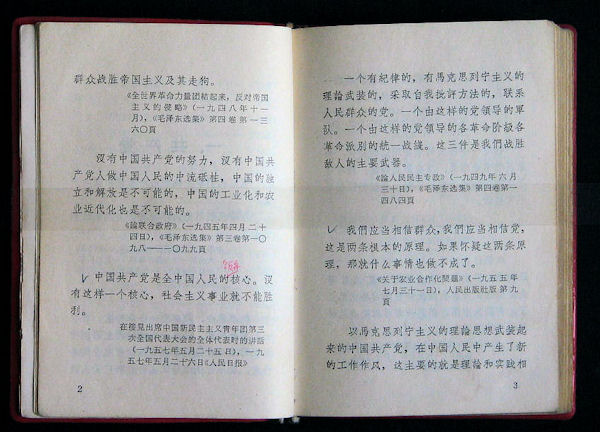 群众战胜帝国主义及其走狗。
《全世界革命力量团結起来，反对帝国
主义的侵略》(一九四八年十一
月)，《毛泽东选集》第四卷第一三
六〇頁
沒有中国共产党的努力，沒有中国共
产党人做中国人民的中流砥柱，中国的独
立和解放是不可能的，中国的工业化和农
业近代化也是不可能的。
《論联合政府》(一九四五年四月二十
四日)，《毛泽东选集》第三卷第一〇
九八——一〇九九頁
✓ 中国共产党是全中国人民的核心。沒
有这样一个核心，社会主义事业就不能胜
利。
在接見出席中国新民主主义青年团第三
次全国代表大会的全体代表时的讲話
(一九五七年五月二十五日)，一九
五七年五月二十六日《人民日报》
2
一个有紀律的，有馬克思列宁主义的
理論武装的，采取自我批評方法的，联系
人民群众的党。一个由这样的党領导的軍
队。一个由这样的党領导的各革命阶級各
革命派別的統一战綫。这三件是我們战胜
敌人的主要武器。
《論人民民主专政》(一九四九年六月
三十日)，《毛泽东选集》第四卷第一
四八四頁
✓ 我們应当相信群众，我們应当相信党，
这是两条根本的原理。如果怀疑这两条原
理，那就什么事情也做不成了。
《关于农业合作化問題》(一九五五年
七月三十一日)，人民出版社版第九
頁
以馬克思列宁主义的理論思想武装起
来的中国共产党，在中国人民中产生了新
的工作作风，这主要的就是理論和实践相
3